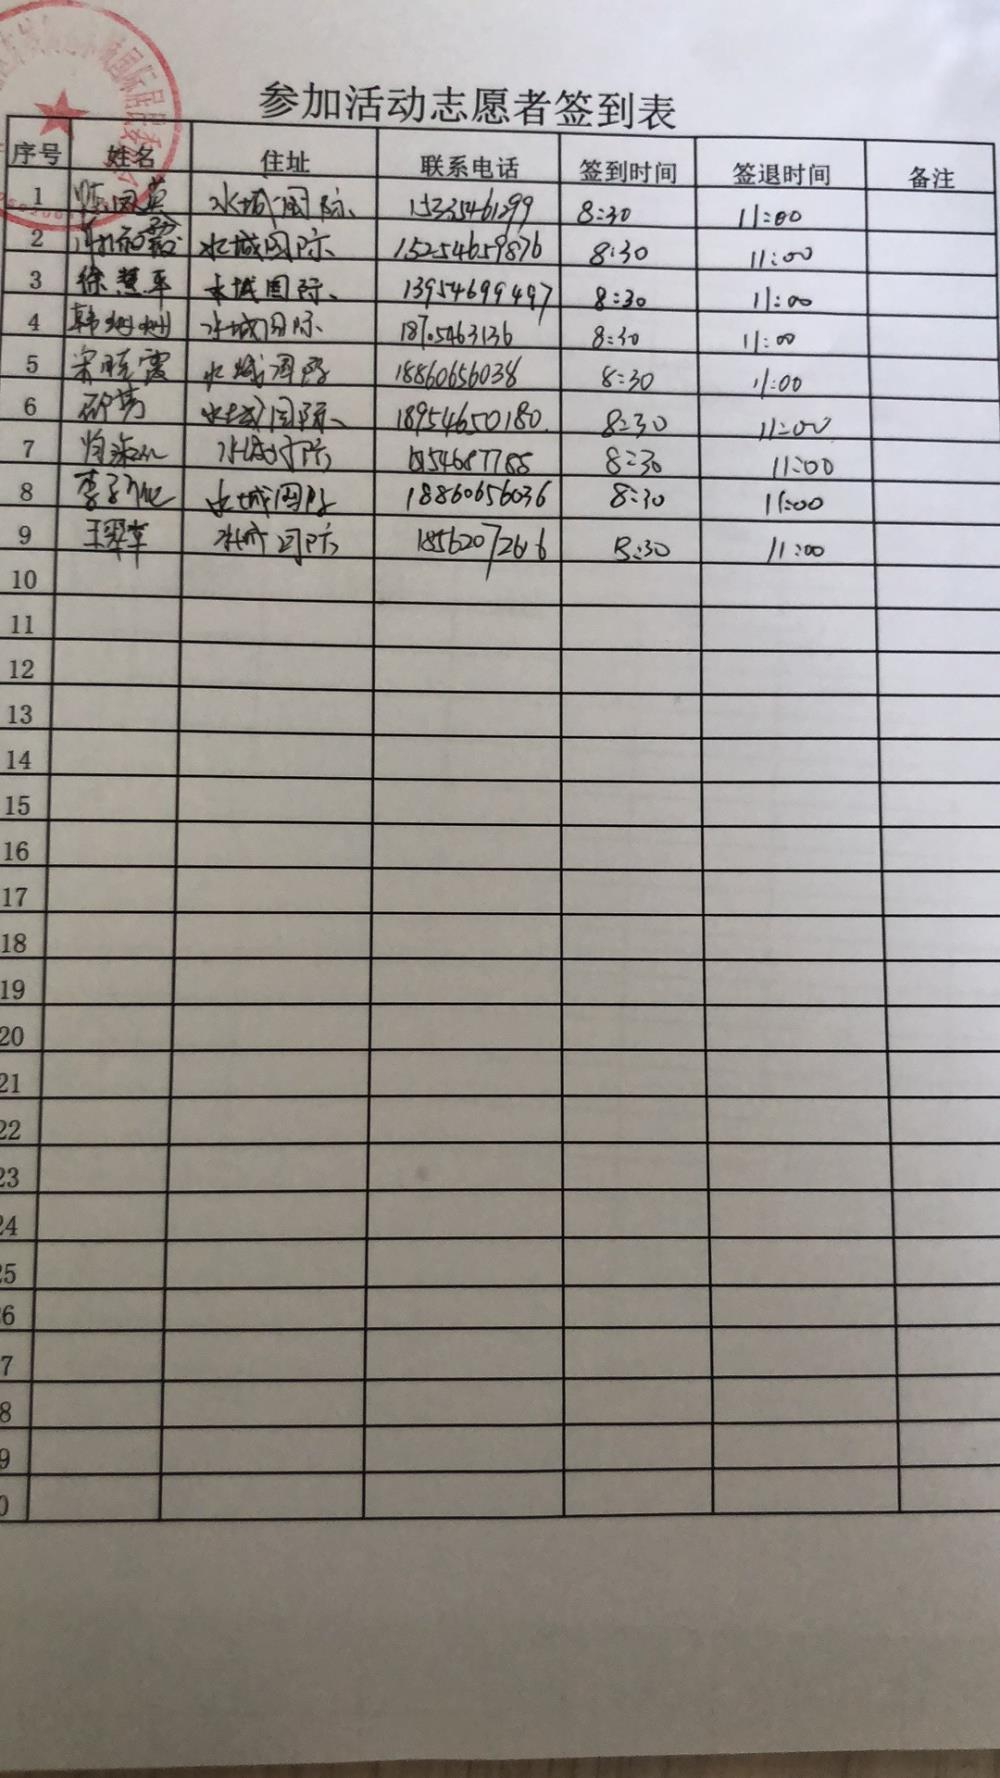 参加活动志愿者签到表
序号 姓名 住址 联系电话 签到时间 签退时间 备注
1 水城国际 15335461299 8:30 11:00
2 水城国际 15254659876 8:30 11:00
3 徐慧平 水城国际 13954699497 8:30 11:00
4 韩 水城国际 8:30 11:00
5 宋晓霞 水城国际 18860656038 8:30 11:00
6 水城国际 18954650180 8:30 11:00
7 水城国际 8:30 11:00
8 李 水城国际 18860656036 8:30 11:00
9 王翠草 水城国际 18562072616 8:30 11:00
10
11
12
13
14
15
16
17
18
19
20
21
22
23
24
25
6
7
8
9
0